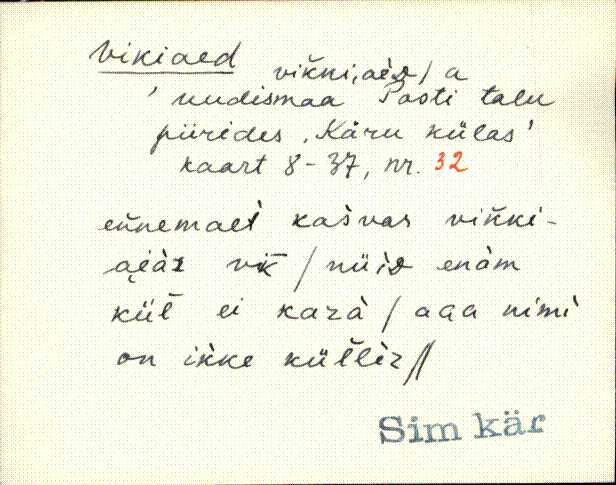 Vikiaed
vik̆ni,aeᴅ / a
' uudismaa Posti talu
piirides, Käru külas'
kaart 8-37, nr. 32
eňnemaeì kašvas vik̆ki-
aeàz vik̄ / nüiᴅ enàm
küľ ei kazà / aga nimi
on ikke küľlèz //
Sim kär